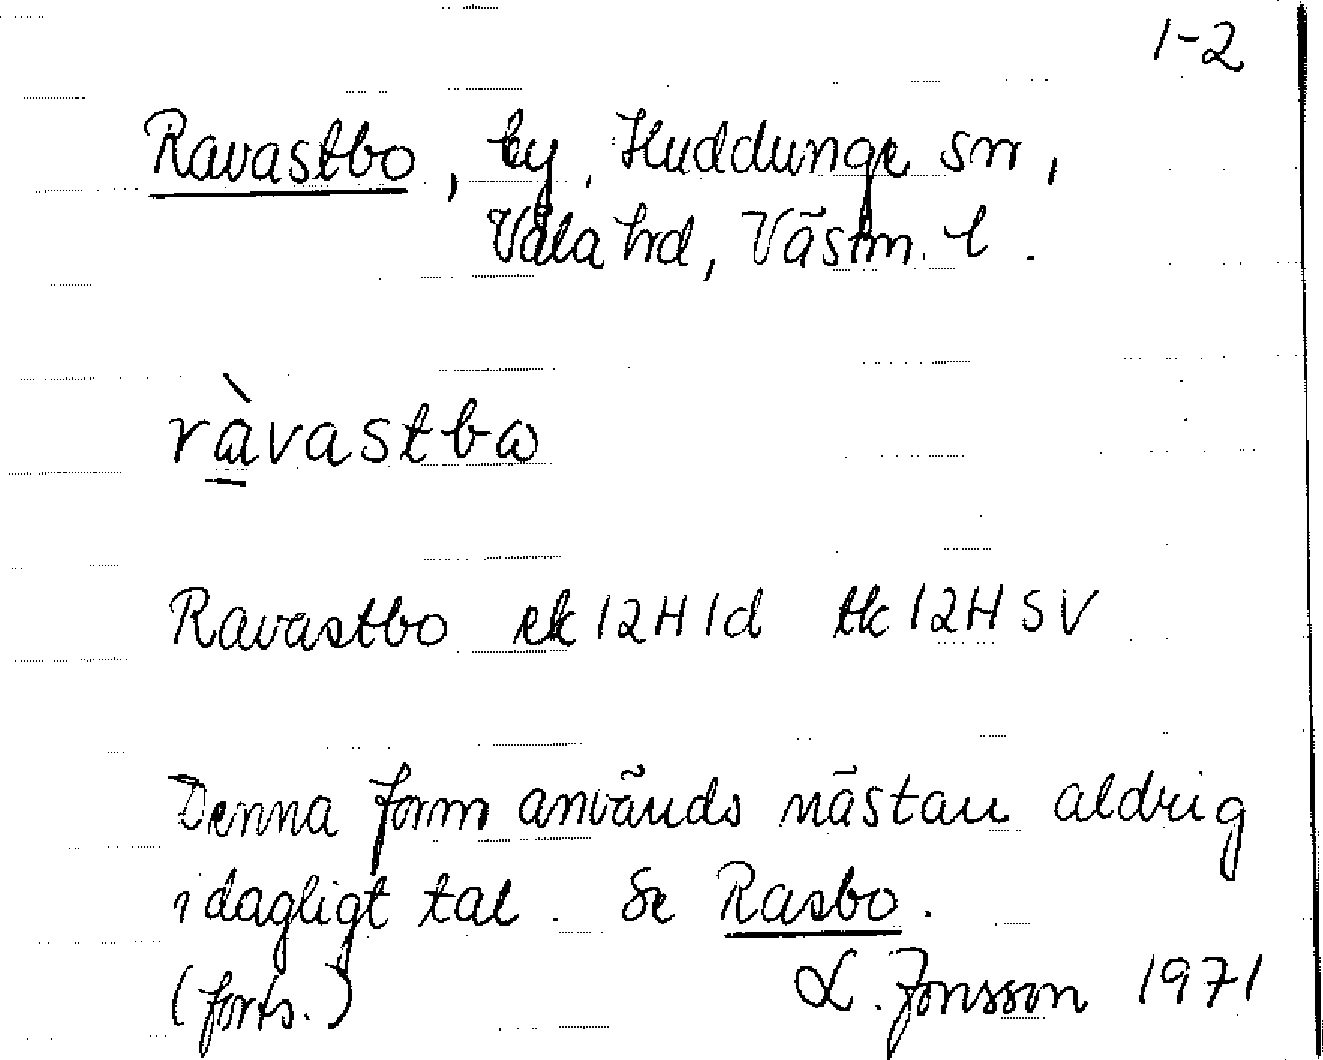 1-2
Ravastbo, by, Huddunge sn,
Våla hd, Västm. l.
ràvastbω
Ravastbo ek 12H 1d tk 12H SV
Denna form används nästan aldrig
i dagligt tal. Se Rasbo.
(forts.) L. Jonsson 1971